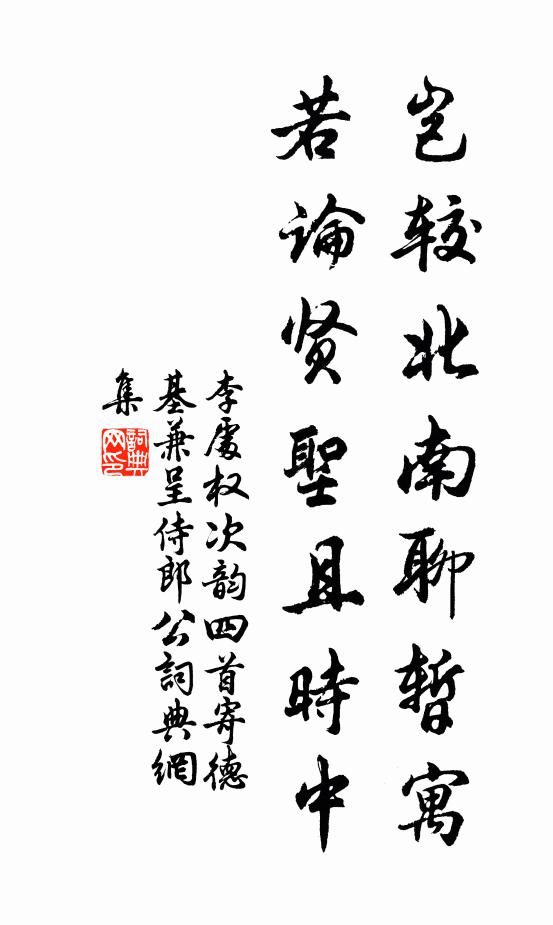 岂较北南聊暂寓
若論贤聖且時中
李處权次韵四首寄德
基兼呈侍郎公詞典網
集
詞典
网印